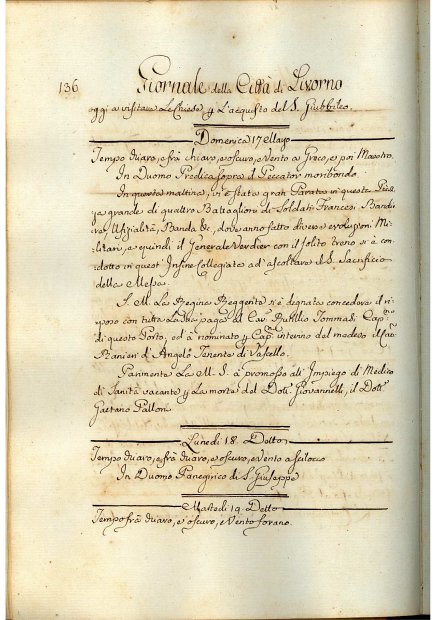 136 Giornale della Città di Livorno
oggi a visitare le Chiese p L'acquisto del S. Giubbileo.
Domenica 17 Mayo
Tempo Vvaro, e frà chiaro, e oscuro, e Vento a Greco, e poi Maestro.
In Duomo Predica sopra il Peccator moribondo.
In questa mattina, vi è stata gran Parata in questa Piaz-
za grande di quattro Battaglioni di Soldati Francesi Bandie
re, Ufizialità, Banda &c, dove anno fatto diverse evoluzioni Mi-
litari, e quindi il Generale Verdier con il solito treno si è con-
dotto in quest' Insine Collegiata ad ascoltare il S. Sacrificio
della Messa.
S. M. La Regina Reggente si è degnata concedere il ri-
poso con tutta La sua paga al Cav. Tommasi Cap.no
di questo Porto, ed à nominato p Cap.no interno del medeso il Cav.
Ranieri d' Angelo Tenente di Vascello.
Parimente La M. S. à promosso all' Impiego di Medico
di Sanità vacante p La morte del Dott. Giovannelli, il Dott.
Gaetano Palloni
Lunedi 18. Detto
Tempo Vvaro, e frà Vvaro, e oscuro, e Vento a Scilocco
In Duomo Panegirico di S. Giuseppe
Martedi 19. Detto
Tempo frà Vvaro, e oscuro, e Vento forano.